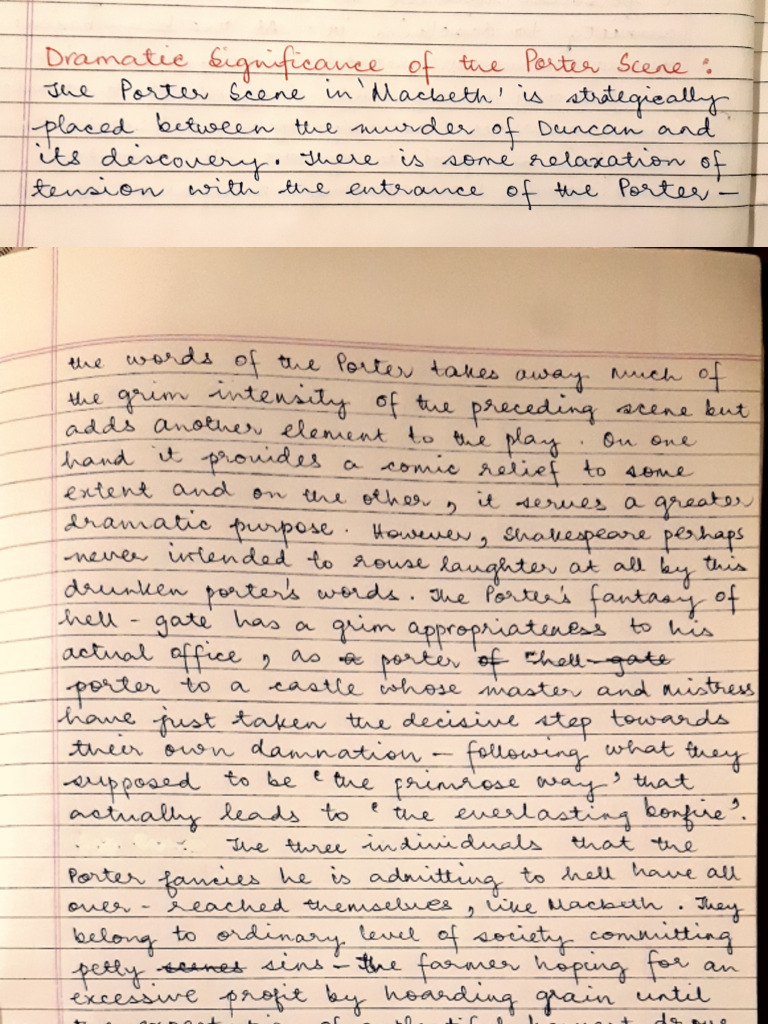 Dramatic Significance of the Porter Scene :
The Porter Scene in 'Macbeth' is strategically
placed between the murder of Duncan and
its discovery. There is some relaxation of
tension with the entrance of the Porter –
the words of the Porter takes away much of
the grim intensity of the preceding scene but
adds another element to the play. On one
hand it provides a comic relief to some
extent and on the other, it serves a greater
dramatic purpose. However, Shakespeare perhaps
never intended to rouse laughter at all by this
drunken porter's words. The Porter's fantasy of
hell-gate has a grim appropriateness to his
actual office, as a porter of "hell-gate
porter to a castle whose master and mistress
have just taken the decisive step towards
their own damnation – following what they
supposed to be 'the primrose way' that
actually leads to 'the everlasting bonfire'.
The three individuals that the
Porter fancies he is admitting to hell have all
over-reached themselves, like Macbeth. They
belong to ordinary level of society committing
petty scenes sins – the farmer hoping for an
excessive profit by hoarding grain until